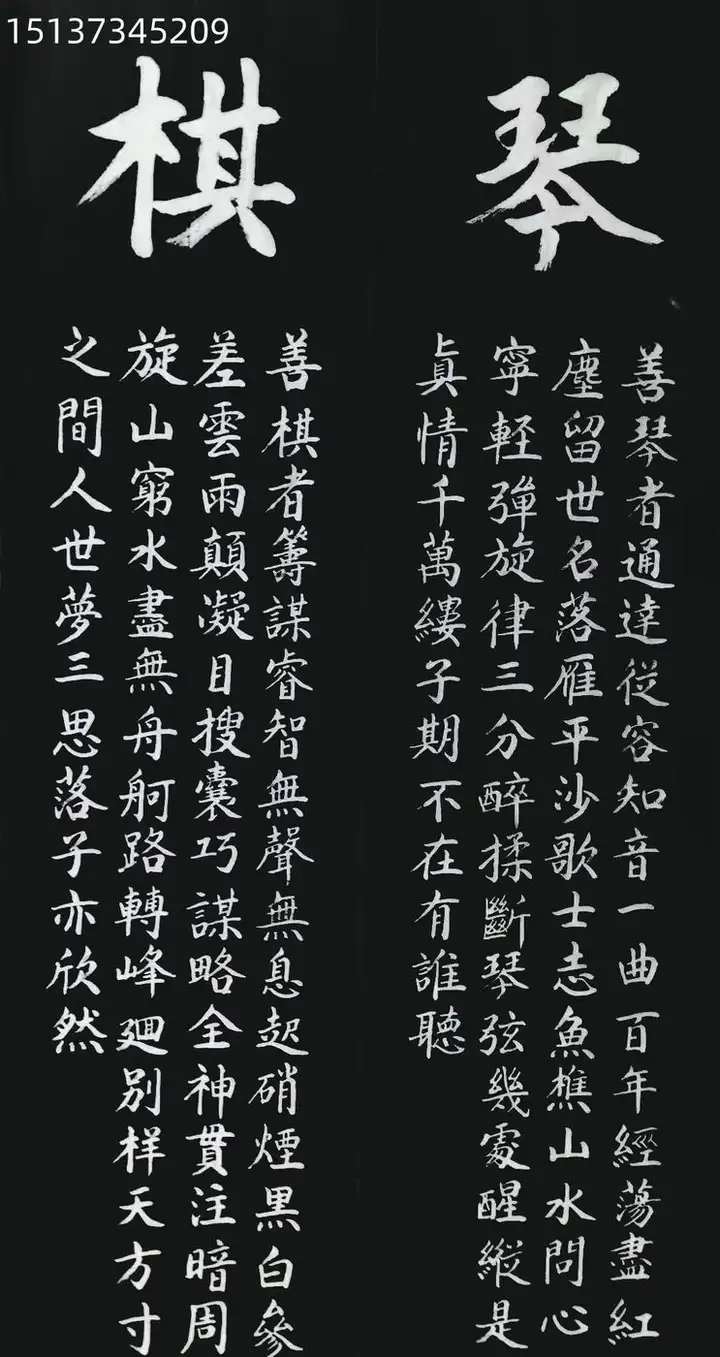 15137345209
琴
善琴者通達從容知音一曲百年經蕩盡紅
塵留世名落雁平沙歌士志魚樵山水問心
寧軽彈旋律三分醉揉斷琴弦幾處醒縱是
真情千萬縷子期不在有誰聽
棋
善棋者籌謀睿智無聲無息起硝煙黑白參
差雲雨顛凝目搜囊巧謀略全神貫注暗周
旋山窮水盡無舟舸路轉峰廻別样天方寸
之間人世夢三思落子亦欣然